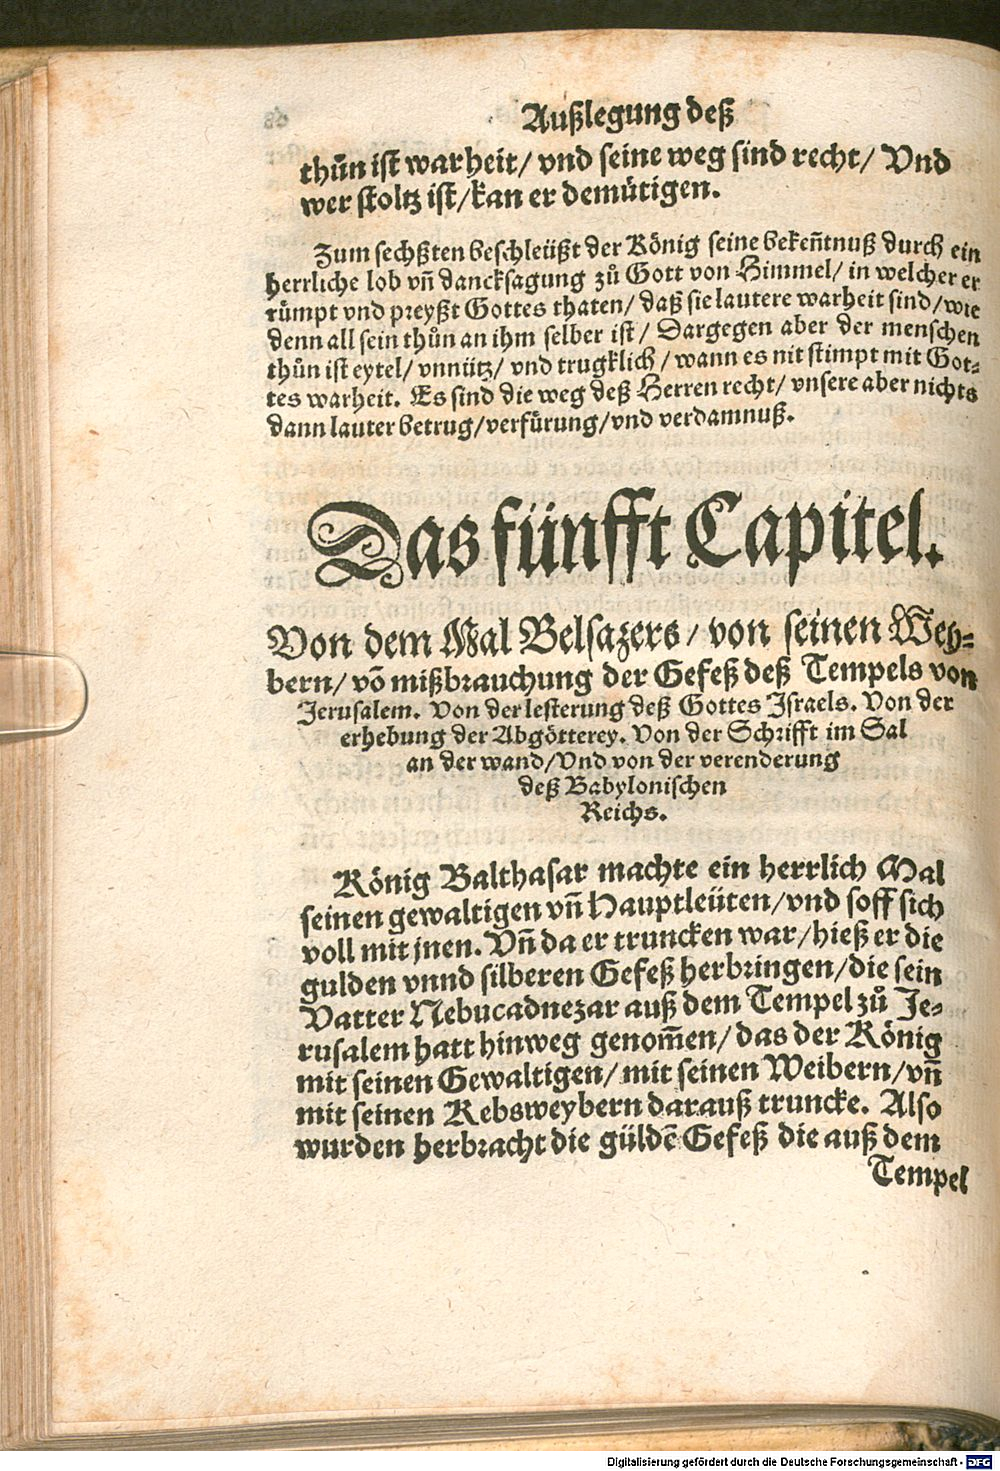 Außlegung deß
thůn ist warheit/ vnd seine weg sind recht/ Vnd
wer stoltz ist/kan er demütigen.
Zum sechßten beschleüßt der König seine bekeñtnuß durch ein
herrliche lob vñ dancksagung zů Gott von Himmel/ in welcher er
rümpt vnd preyßt Gottes thaten/ daß sie lautere warheit sind/wie
denn all sein thůn an ihm selber ist/ Dargegen aber der menschen
thůn ist eytel/ vnnütz/ vnd trugklich/wann es nit stimpt mit Got-
tes warheit. Es sind die weg deß Herren recht/ vnsere aber nichts
dann lauter betrug/verfürung/vnd verdamnuß.
Das fünfft Capitel.
Von dem Mal Belsazers/ von seinen Wey-
bern/ võ mißbrauchung der Gefeß deß Tempels von
Jerusalem. Von der lesterung deß Gottes Israels. Von der
erhebung der Abgötterey. Von der Schrifft im Sal
an der wand/Vnd von der verenderung
deß Babylonischen
Reichs.
König Balthasar machte ein herrlich Mal
seinen gewaltigen vñ Hauptleüten/vnd soff sich
voll mit jnen. Vñ da er truncken war/hieß er die
gulden vnnd silberen Gefeß herbringen/die sein
Vatter Nebucadnezar auß dem Tempel zů Je-
rusalem hatt hinweg genom̃en/ das der König
mit seinen Gewaltigen/ mit seinen Weibern/vñ
mit seinen Kebsweybern darauß truncke. Also
wurden herbracht die güldẽ Gefeß die auß dem
Tempel
Digitalisierung gefördert durch die Deutsche Forschungsgemeinschaft - DFG